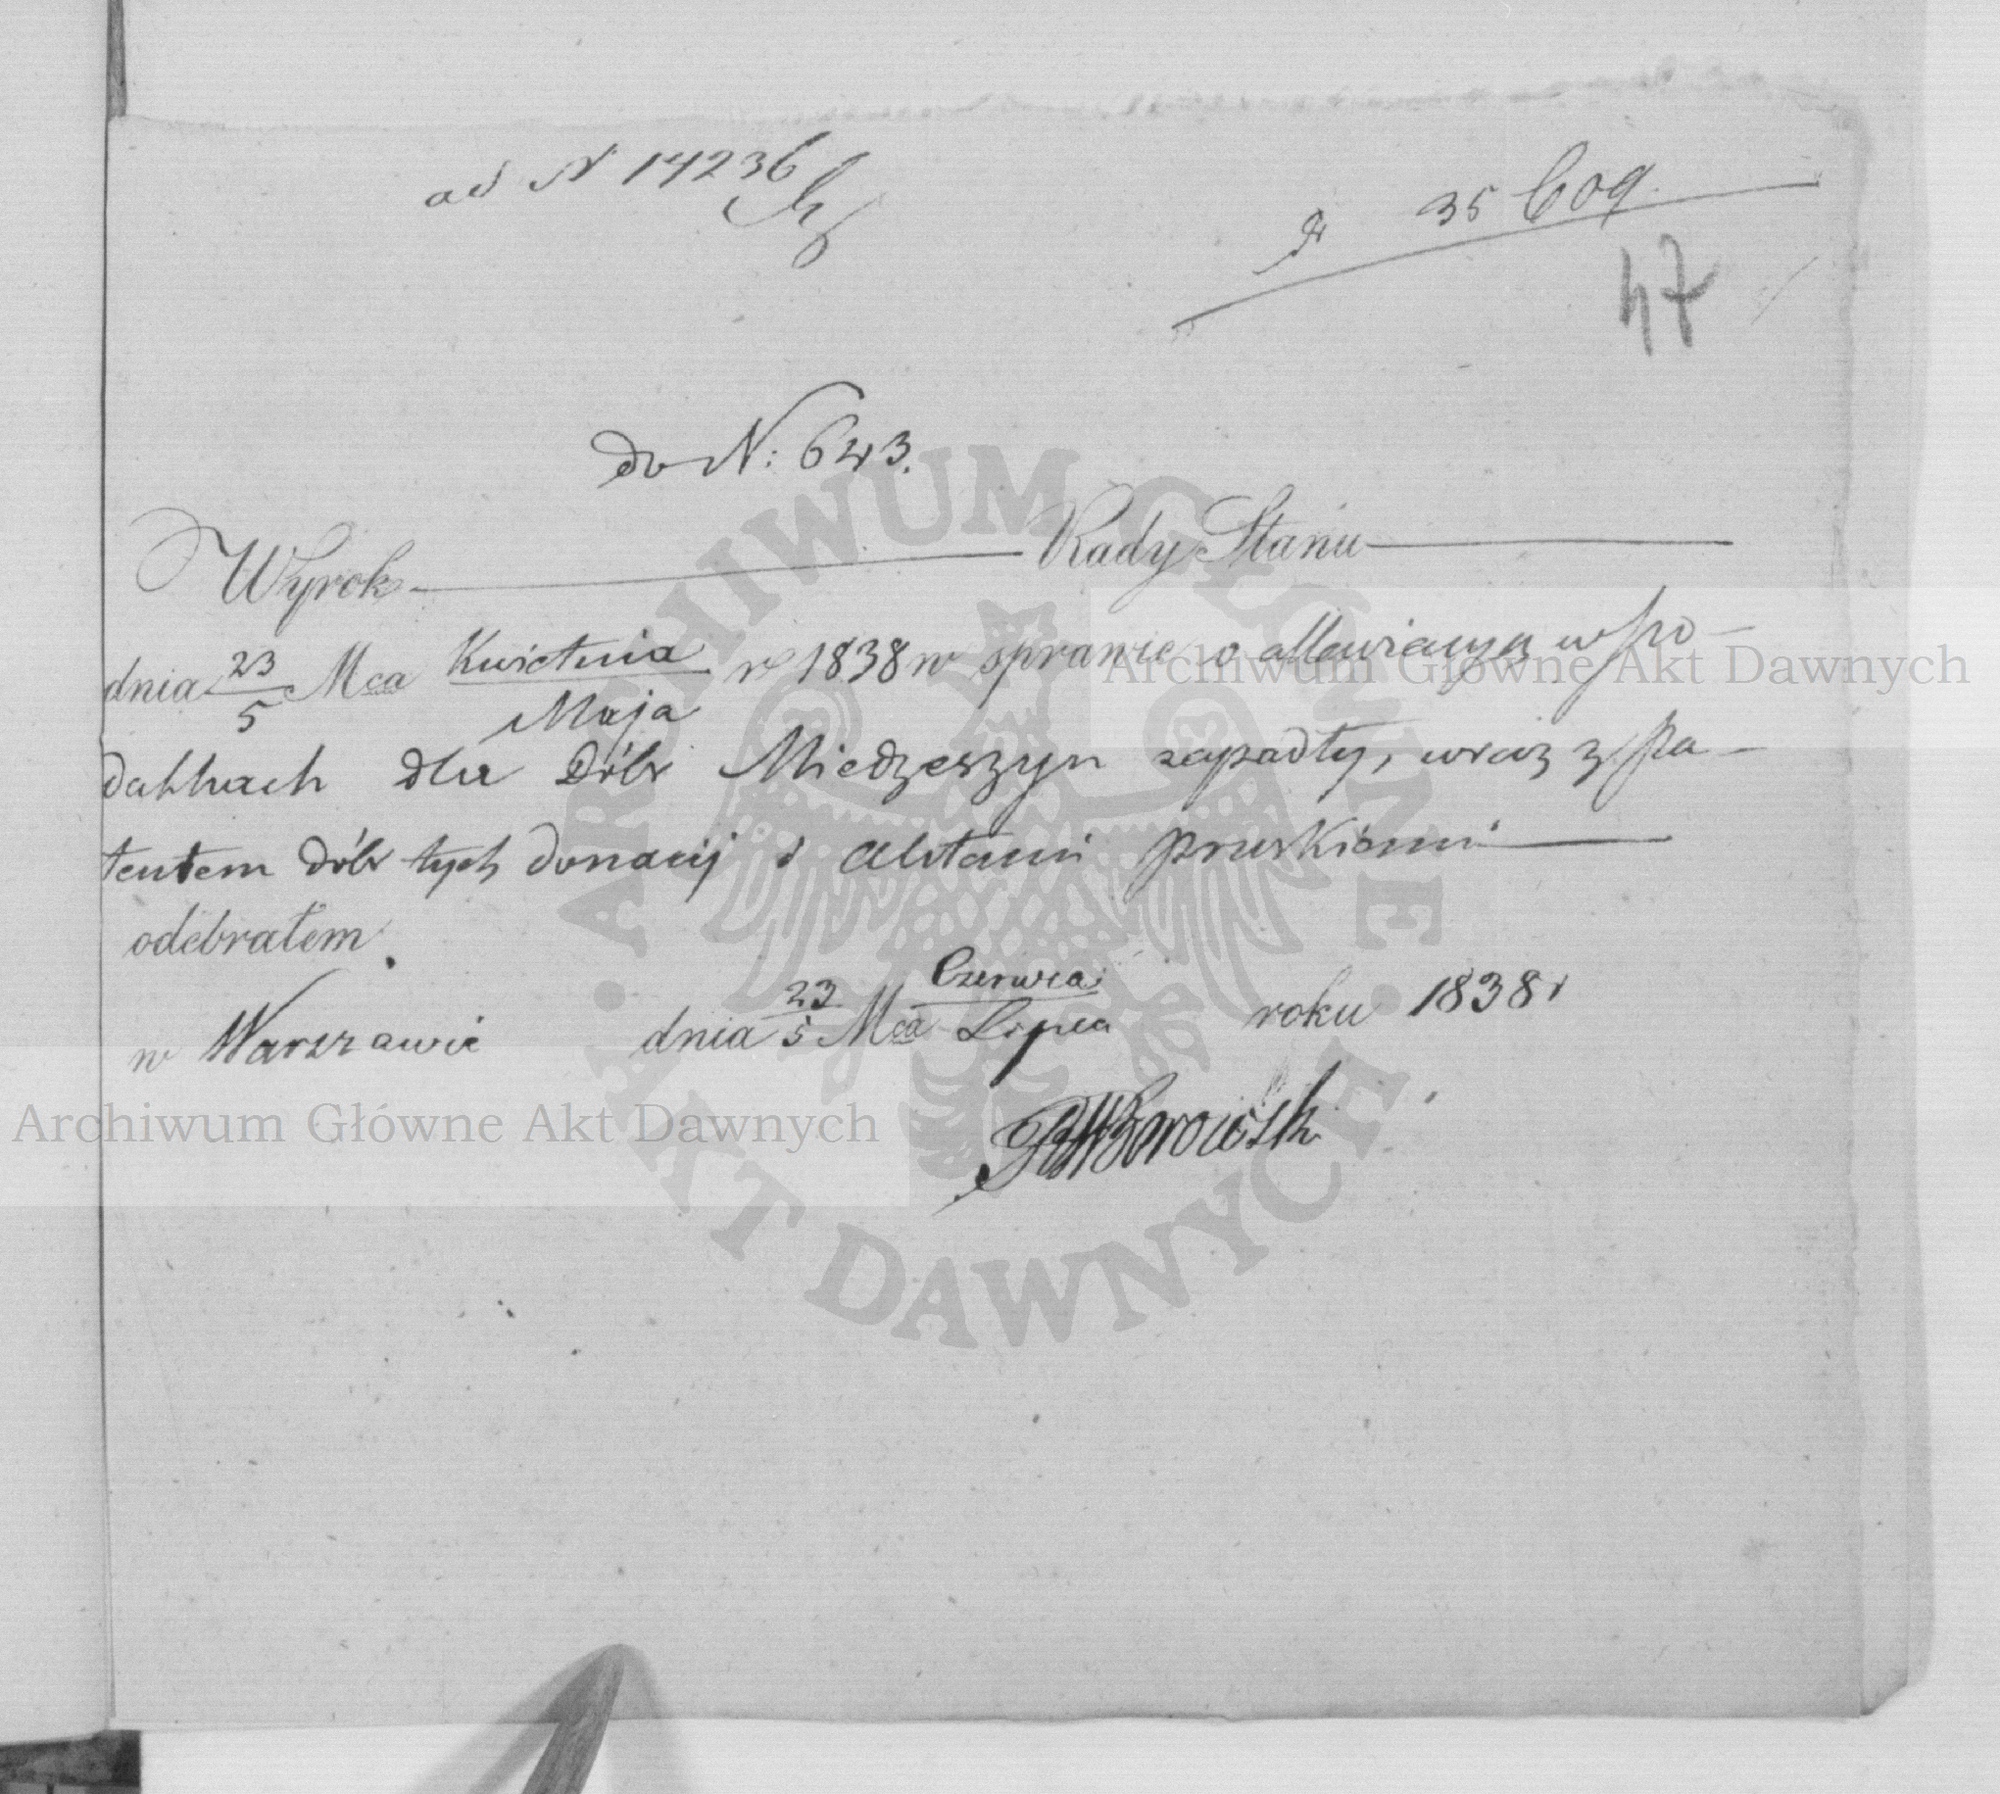 ad N 14236
35 609.
47
do N: 643.
Wyrok Rady Stanu
dnia 23/5 Mca Kwietnia/Maja r 1838 w sprawie o allewiacyą w po-
datkach dla Dóbr Miedzeszyn zapadły, wraz z pa-
tentem dóbr tych donacij i aktami pruskiemi
odebrałem.
w Warszawie dnia 23/5 Mca Czerwca/Lipca roku 1838 r
Borowski
ARCHIWUM GŁÓWNE AKT DAWNYCH
Archiwum Główne Akt Dawnych
Archiwum Główne Akt Dawnych